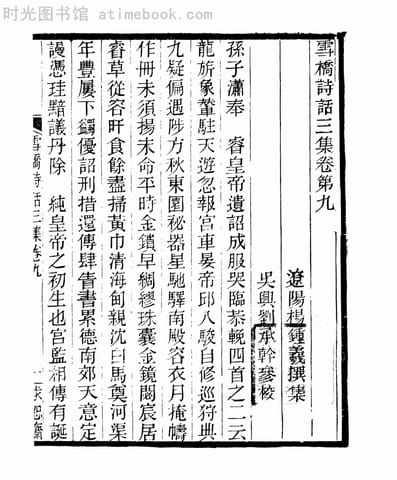 时光图书馆 - atimebook.com
雪橋詩話三集卷第九
遼陽楊鍾羲撰集
吳興劉承幹參校
孫子瀟奉　睿皇帝遺詔成服哭臨恭輓四首之二云
龍旂象輦駐天遊忽報宮車晏帝邱八駿自修巡狩典
九疑偏遇陟方秋東園秘器星馳驛南殿容衣月掩幬
作冊未須揚末命平時金鎖早綢繆珠囊金鏡閟宸居
睿草從容旰食餘盡掃黃巾清海甸親沈白馬奠河渠
年豐屢下蠲優詔刑措還傳肆眚書累德南郊天意定
謾憑珪黯議丹除　純皇帝之初生也宮監相傳有誕
雪橋詩話三集卷九
一
求恕齋